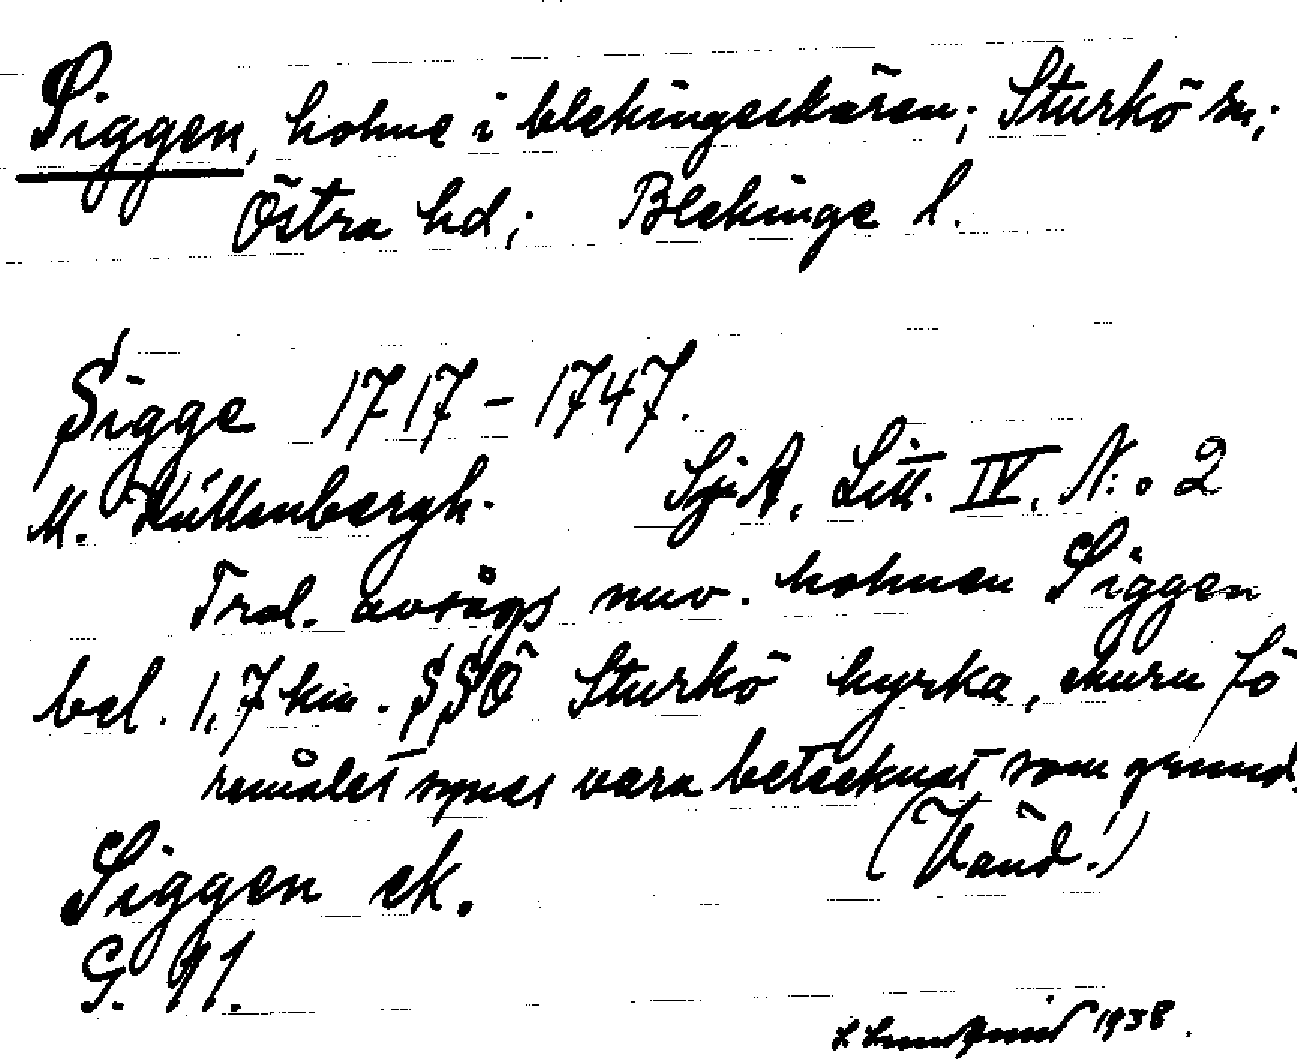 Siggen, holme i blekingeskären; Sturkö sn;
Östra hd; Blekinge l.
Sigge 1717-1747.
M. Hüllenbergh. SjA. Litt. IV. N:o 2
Trol. avsågs nuv. holmen Siggen
bel. 1,7 km. SSÖ Sturkö kyrka, ehuru fö
remålet synes vara betecknat som grund.
(Vänd!)
Siggen ek.
G. 91.
1938.